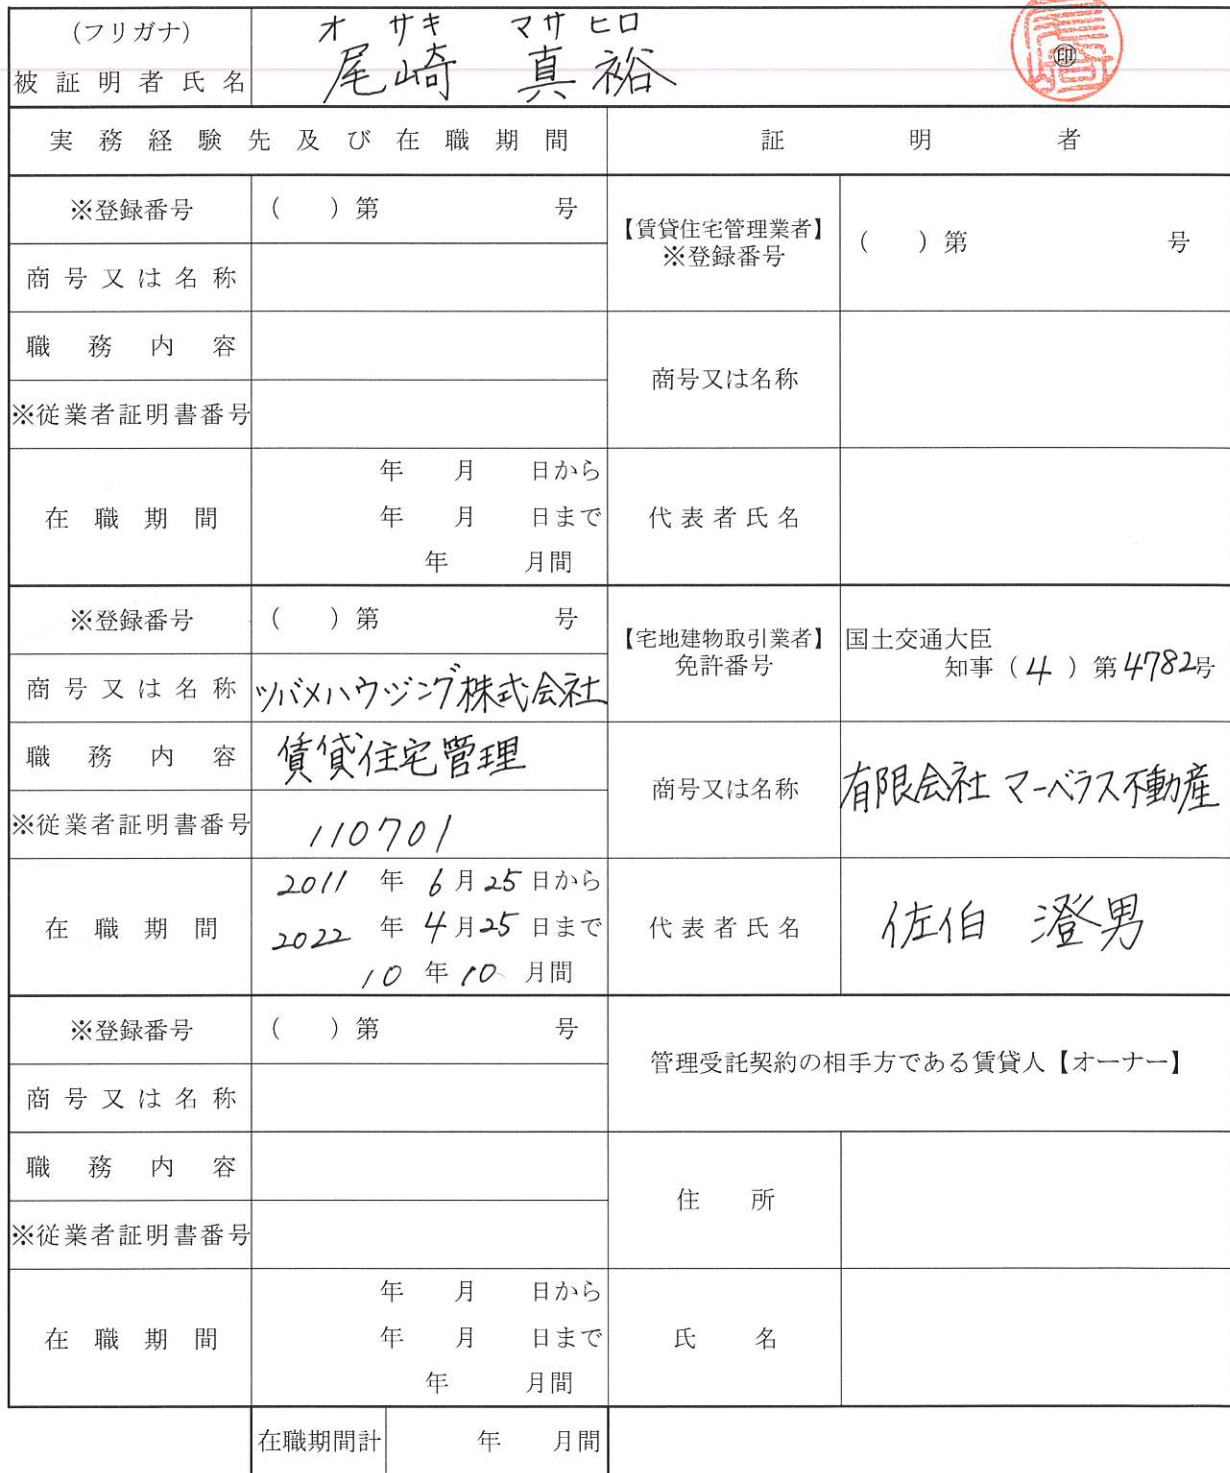 (フリガナ) オサキ マサヒロ
被証明者氏名 尾崎 真裕 ㊞
実務経験先及び在職期間 証明者
※登録番号 ( ) 第 号
商号又は名称
職務内容
※従業者証明書番号
在職期間
年 月 日から
年 月 日まで
年 月間
【賃貸住宅管理業者】
※登録番号 ( ) 第 号
商号又は名称
代表者氏名
※登録番号 ( ) 第 号
商号又は名称 ツバメハウジング株式会社
職務内容 賃貸住宅管理
※従業者証明書番号 110701
在職期間
2011 年 6 月 25 日から
2022 年 4 月 25 日まで
10 年 10 月間
【宅地建物取引業者】 国土交通大臣
免許番号 知事 ( 4 ) 第 4782号
商号又は名称 有限会社 マーベラス不動産
代表者氏名 佐伯 澄男
※登録番号 ( ) 第 号
商号又は名称
職務内容
※従業者証明書番号
在職期間
年 月 日から
年 月 日まで
年 月間
管理受託契約の相手方である賃貸人【オーナー】
住所
氏名
在職期間計 年 月間